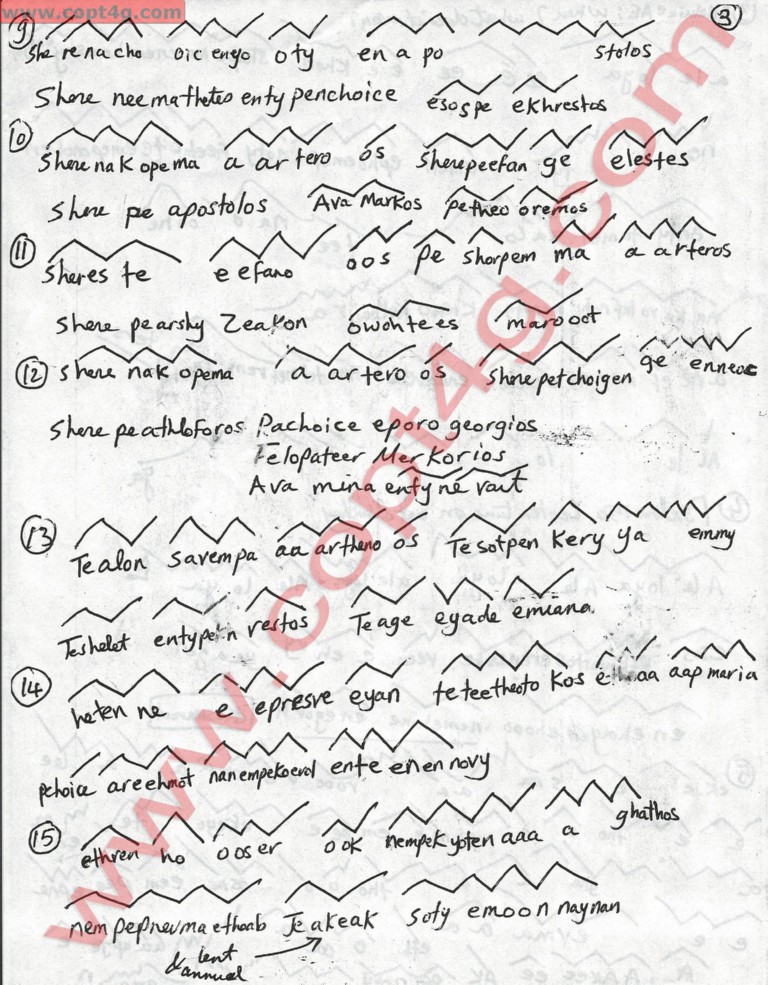 www.copt4g.com
3
9 Shere nacho oic enyo oty en a po stolos
Shere nee mathetes enty penchoice esos pe ekhrestos
10 Shere nak opema a ar tero os Sherepeefan ge elestes
Shere pe apostolos Ava Markos petheo oremos
11 Sheres te e efano oos pe shorpem ma a arteros
Shere pearshy Zeakon owohtees marooot
12 Shere nak opema a ar tero os Shere petchoigen ge enneoc
Shere peathloforos Pachoice eporo georgios
Felopateer Merkorios
Ava mina enty ne vait
13 Tealon savempa aa artheno os Tesotpen Kery ya emmy
Teshelet entype n restos Te age eyade emiana
14 heten ne e epresve eyan te teetheoto kos ethaa aap maria
pchoice areehmot nan empekoevol ente enen novy
15 ethren ho ooser ook nempek yoten aaa a ghathos
nem pepnevma ethoab Je akeak soty emoon naynan
& lent
annual
www.copt4g.com